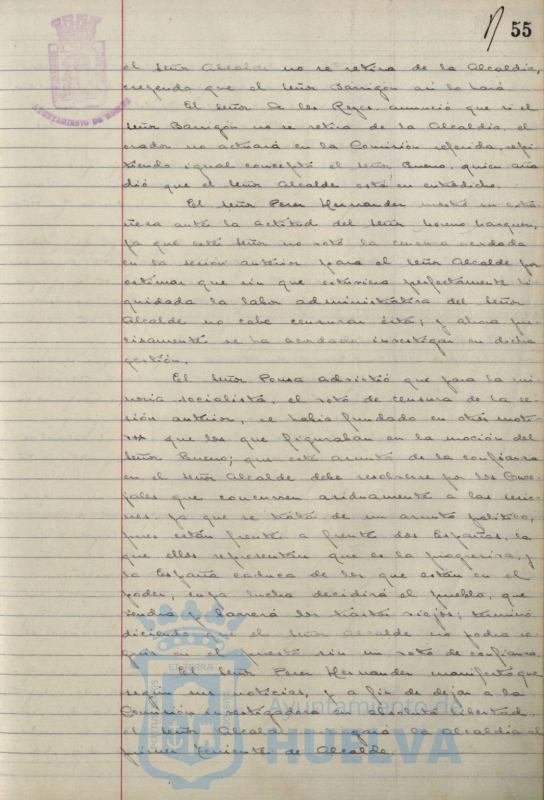 55
el Señor Alcalde no se retira de la Alcaldía,
creyendo que el Señor Barrigón así lo hará
El Señor de los Reyes anunció que si el
Señor Barrigón no se retira de la Alcaldía, el
orador no actuará en la Comisión referida, repi-
tiendo igual concepto el Señor Bueno, quien aña-
dió que el Señor Alcalde está en entredicho.
El Señor Perez Hernandez mostró su extra-
ñeza ante la actitud del Señor Moreno Marquez,
ya que este Señor no votó la censura acordada
en la sesión anterior para el Señor Alcalde por
estimar que sin que estuviera perfectamente li-
quidada la labor administrativa del Señor
Alcalde no cabe censurar ésta; y ahora pre-
cisamente se ha acordado investigar en dicha
gestión.
El Señor Ponsa advirtió que para la mi-
noria socialista, el voto de censura de la se-
sión anterior, se habia fundado en otros moti-
vos que los que figuraban en la moción del
Señor Bueno; que este asunto de la confianza
en el Señor Alcalde debe resolverse por los Conce-
jales que concurren asiduamente a las sesio-
nes, ya que se trata de un asunto político,
pues están frente a frente dos Españas, la
que ellos representan que es la progresiva, y
la España caduca de los que están en el
poder, cuya lucha decidirá el pueblo, que
vendrá y barrerá los trastos viejos; terminó
diciendo que el Señor Alcalde no podrá se-
guir en el puesto sin un voto de confianza.
El Señor Perez Hernandez manifestó que
según sus noticias, y a fin de dejar a la
Comisión investigadora en absoluta libertad,
el Señor Alcalde la Alcaldía al
primer Teniente de Alcalde.
AYUNTAMIENTO DE HUELVA
Ayuntamiento de
HUELVA